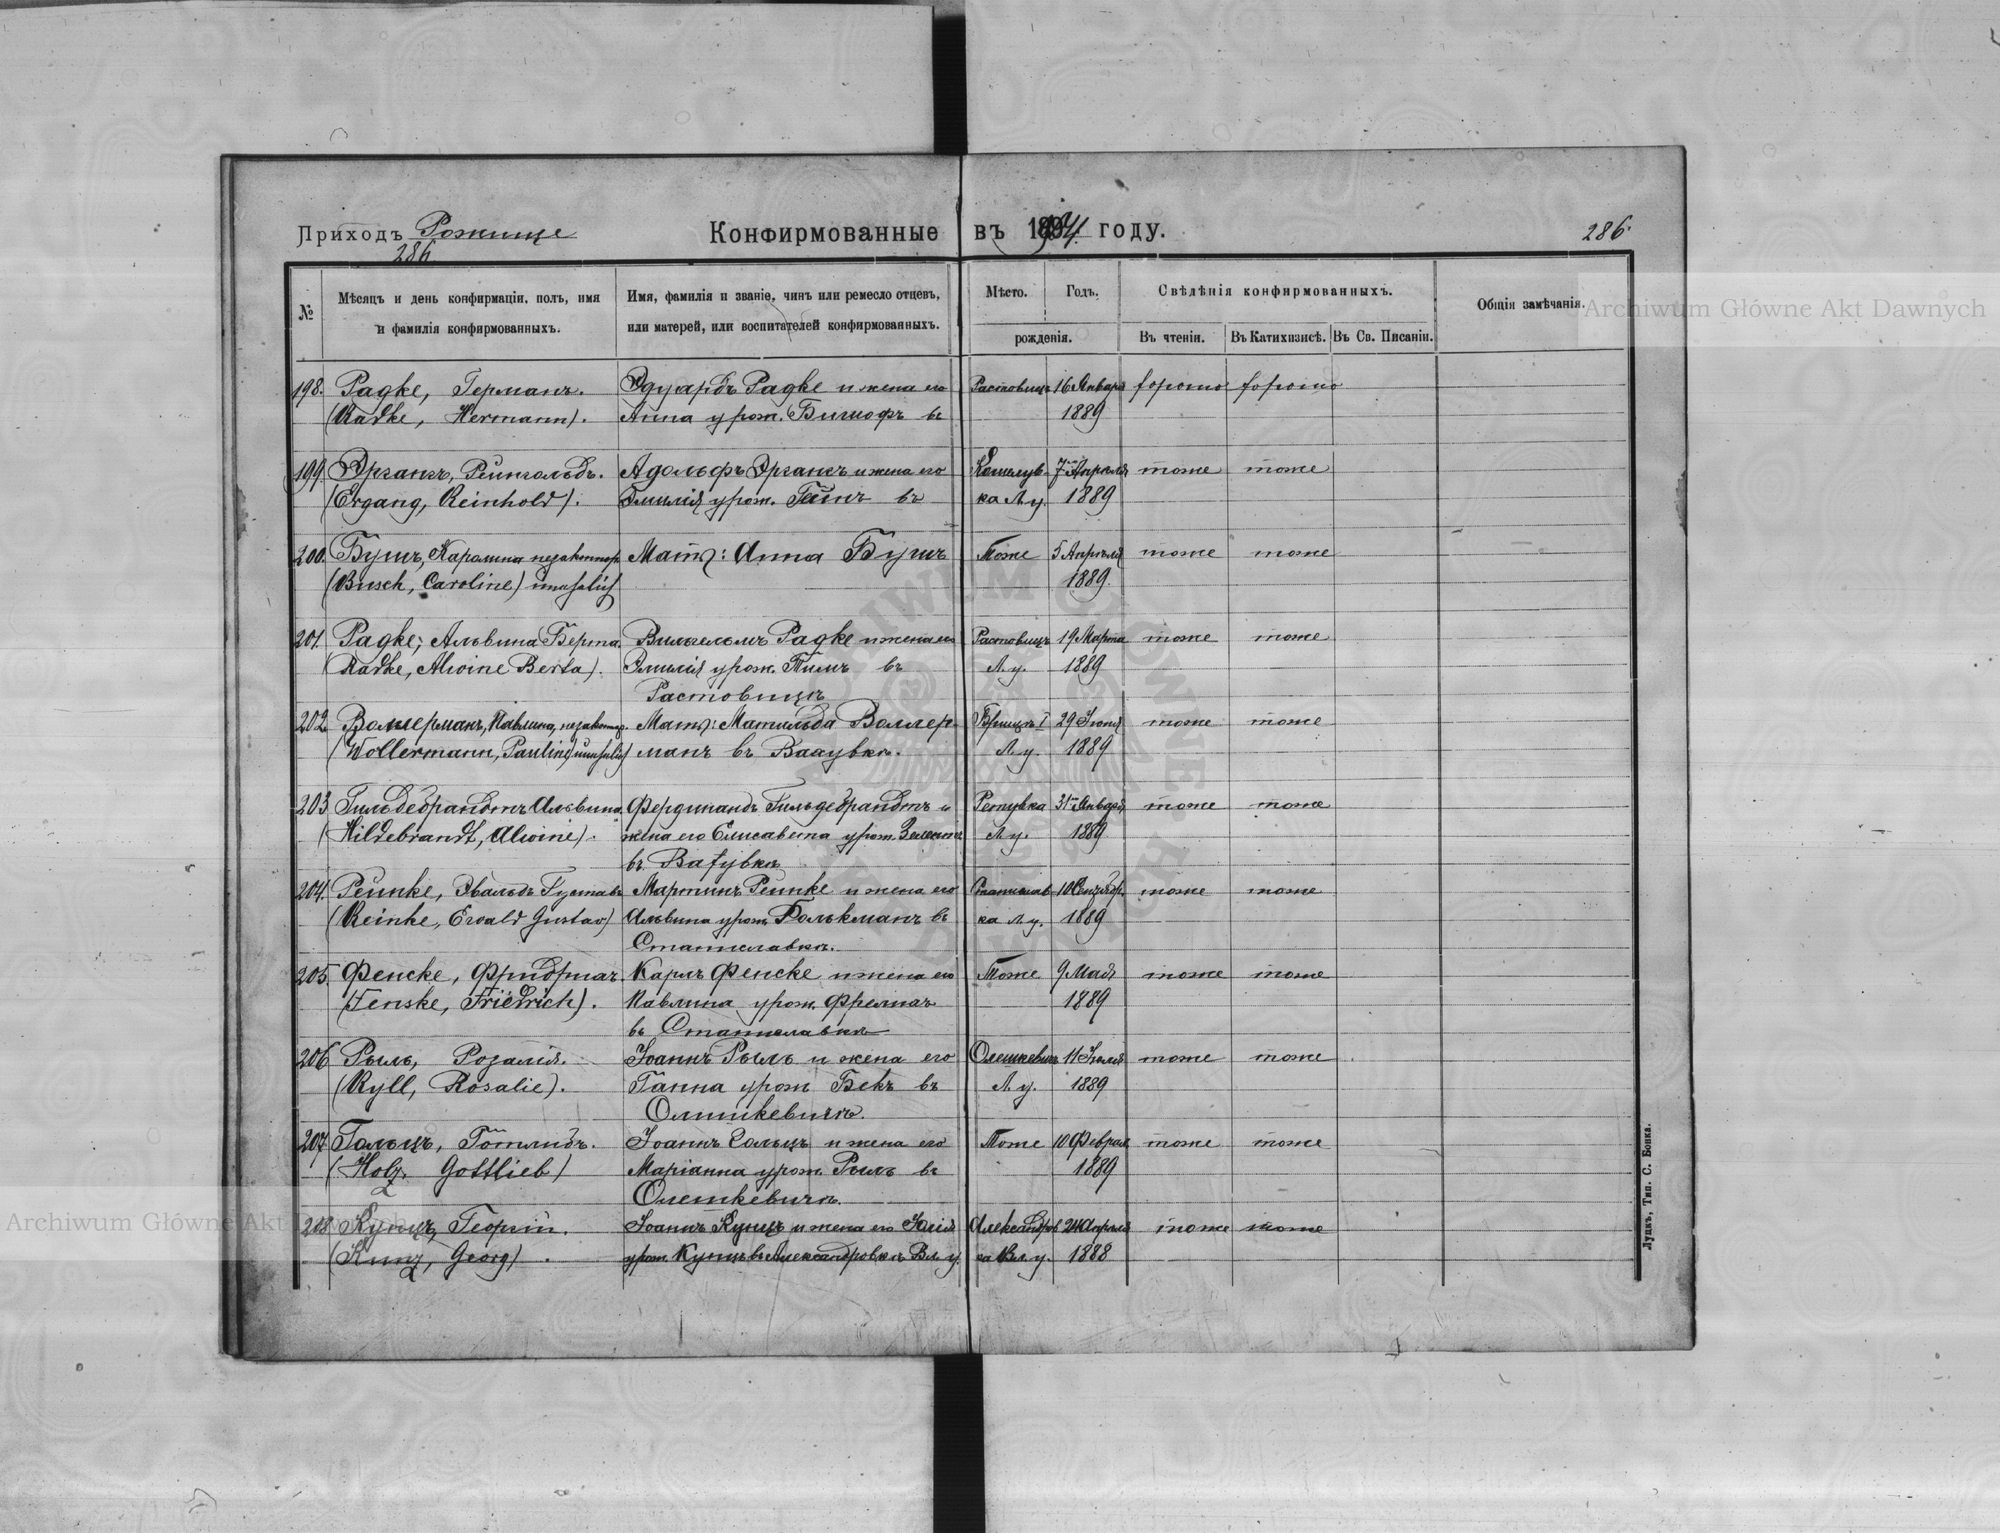 Приходъ Рожище
286
Конфирмованные въ 1904 году.
286.
№
Мѣсяцъ и день конфирмаціи, полъ, имя
и фамилія конфирмованныхъ.
Имя, фамилія и званіе, чинъ или ремесло отцевъ,
или матерей, или воспитателей конфирмованныхъ.
Мѣсто.
Годъ.
рожденія.
Свѣдѣнія конфирмованныхъ.
Въ чтеніи.
Въ Катихизисѣ.
Въ Св. Писаніи.
Общія замѣчанія.
Archiwum Główne Akt Dawnych
198. Радке, Германъ. Эдуардъ Радке и жена его 16 Января хорошо хорошо
(Radke, Hermann). Анна урож. въ 1889
199. Эргангъ, Рейнгольдъ. Адольфъ Эргангъ и жена его 7 Апрѣля тоже тоже
(Ergang, Reinhold). Эмилія урож. въ ка Л у. 1889
200. Бушъ, Каролина Мать: Анна Бушъ Тоже 5 Апрѣля тоже тоже
(Busch, Caroline) 1889.
201. Радке, Альвина Берта. Вильгельмъ Радке и жена его 19 Марта тоже тоже
(Radke, Alwine Berta). Эмилія урож. Тимъ въ Л у. 1889
202. Воллерманъ, Павлина, Мать: Матильда Воллер- 29 Іюня тоже тоже
(Wollermann, Pauline) манъ въ Л у. 1889
203. Гильдебрандтъ Альвина. Фердинандъ Гильдебрандтъ и 31 Января тоже тоже
(Hildebrandt, Alwine). жена его Елисавета урож. Л у. 1889
въ
204. Рейнке, Эвальдъ Густавъ Мартинъ Рейнке и жена его Станислав- тоже тоже
(Reinke, Ewald Gustav) Альвина урож. въ ка Л у. 1889
Станиславкѣ.
205. Фенске, Фридрихъ. Карлъ Фенске и жена его Тоже 9 Мая тоже тоже
(Fenske, Friedrich). Павлина урож. 1889
въ Станиславкѣ
206. Рыль, Розалія. Іоаннъ Рыль и жена его Олешкевичъ тоже тоже
(Ryll, Rosalie). Ганна урож. Бекъ въ Л у. 1889
207. Гольцъ, Готлибъ. Іоаннъ Гольцъ и жена его Тоже 10 Феврал. тоже тоже
(Holz, Gottlieb) Маріанна урож. Рыль въ 1889
Олешкевичѣ.
208. Кунцъ, Георгій. Іоаннъ Кунцъ и жена его Юлія Александров- 24 Апрѣля тоже тоже
(Kunz, Georg). урож. Кунцъ въ Александровкѣ Вл. у. ка Вл. у. 1888
Archiwum Główne Akt Dawnych
Луцкъ, Тип. С. Бонка.